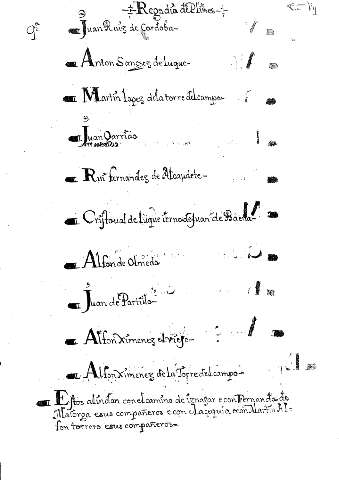 Regondía de Pinos
9º
Juan Ruiz de Cordoba
Anton Sanches de luque
Martin lopez de la torre del campo
Juan Garrido
Rui fernandez de Alcaudete
Cristoual de luque ierno de Juan de Baena
Alfon de Olmedo
Juan de Portillo
Alfon Ximenez el viejo
Alfon Ximenez de la Torre del campo
Estos alindan con el camino de ignajar e con Fernando de
Maiorga e sus compañeros e con el acequia e con Martin Al-
fon torrero e sus compañeros